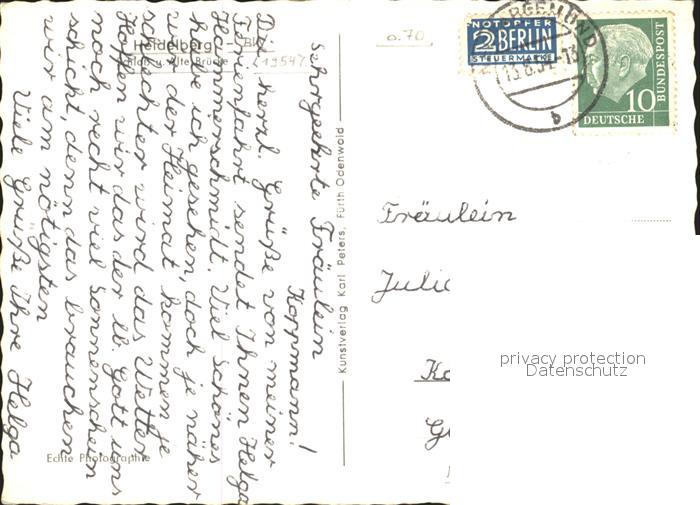 Sehrgeehrte Fräulein
Koppmann!
Die herzl. Grüße von meiner
Ferienfahrt sendet Ihnen Helga
Hammerschmidt. Viel schönes
habe ich gesehen, doch je näher
wir der Heimat kommen je
schlechter wird das Wetter
Hoffen wir das der lb. Gott uns
noch recht viel Sonnenschein
schickt, denn das brauchen
wir am nötigsten
Viele Grüße Ihre Helga
Heidelberg
Schloß u. Alte Brücke
(1954?)
Echte Photographie
Kunstverlag Karl Peters, Fürth Odenwald
a.70
NOTOPFER
2 BERLIN
STEUERMARKE
13.8.54.-13
b
10
DEUTSCHE
BUNDESPOST
Fräulein
privacy protection
Datenschutz